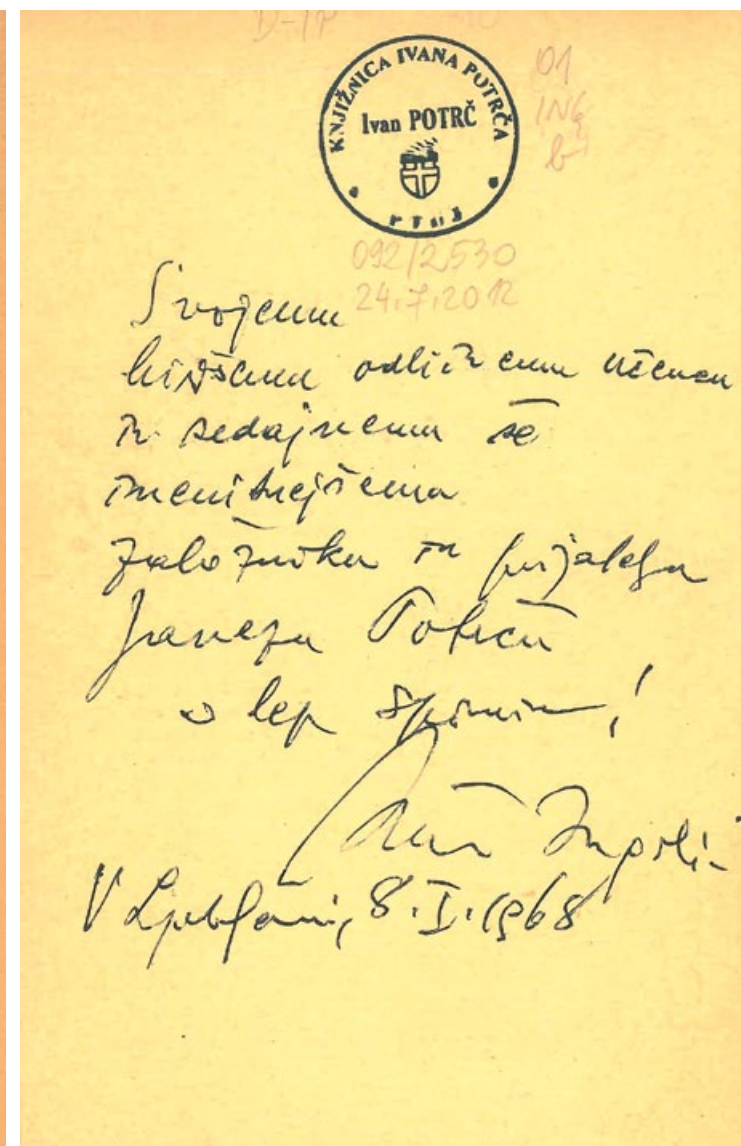 D-IP
KNJIŽNICA IVANA POTRČA
Ivan POTRČ
PTUJ
01
ING
b
092/2530
24.7.2012
Svojemu
bivšemu odličnemu učencu
in sedajnemu še
imenitnejšemu
založniku in prijatelju
Janezu Potrču
v lep spomin!
Anton Ingolič
V Ljubljani, 8. I. 1968